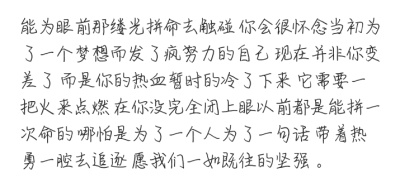 能为眼前那缕光拼命去触碰 你会很怀念当初为
了一个梦想而发了疯努力的自己 现在并非你变
差了 而是你的热血暂时的冷了下来 它需要一
把火来点燃 在你没完全闭上眼以前都是能拼一
次命的 哪怕是为了一个人为了一句话 带着热
勇一腔去追逐 愿我们一如既往的坚强 。